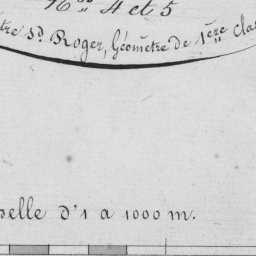 Nos 4 et 5
tre Sr. Roger, Géomètre de 1ère clas
pelle d'1 a 1000 m.